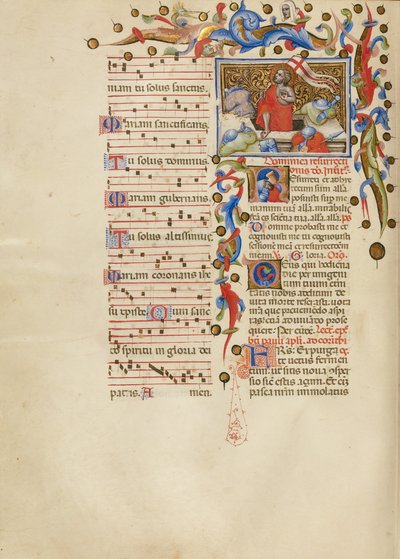 niam tu solus sanctus.
Mariam sanctificans.
Tu solus dominus.
Mariam gubernans.
Tu solus altissimus.
Mariam coronans ihe
su xpiste. Cum sanc
to spiritu in gloria dei
patris. Amen.
Dominica resurrecti
onis
Resurrexi et adhuc
tecum sum alla.
posuisti sup me
manum tua alla. mirabilis
cta est scientia tua. alla. alla. ps
Domine probasti me et
cognovisti me tu cognovisti
sessionem mea et resurrectionem
meam. V. Gloria. Oro.
Deus qui hodierna
die per unigeni
tum tuum eterni
tatis nobis aditum de
victa morte reserasti. vota
nra que preveniendo aspi
ras etiam adiuvando prose
quere. Per eundem. Lectio epl'e
bti pauli apli. ad corinthi
FRS. Expurga
te vetus fermen
tum. ut sitis nova consper
sio sicut estis açimi. Et eni
pasca nrm immolatus